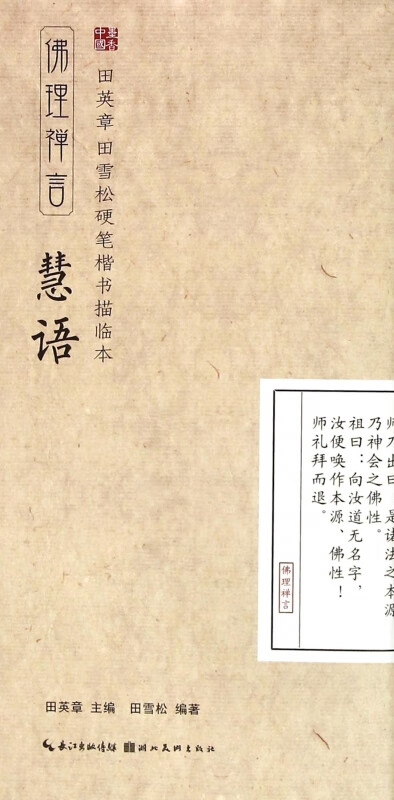 墨香中國
佛理禅言
慧语
田英章田雪松硬笔楷书描临本
师乃出曰：是诸法之本源
乃神会之佛性。
祖曰：向汝道无名字，
汝便唤作本源、佛性！
师礼拜而退。
佛理禅言
田英章 主编 田雪松 编著
长江出版传媒 湖北美术出版社